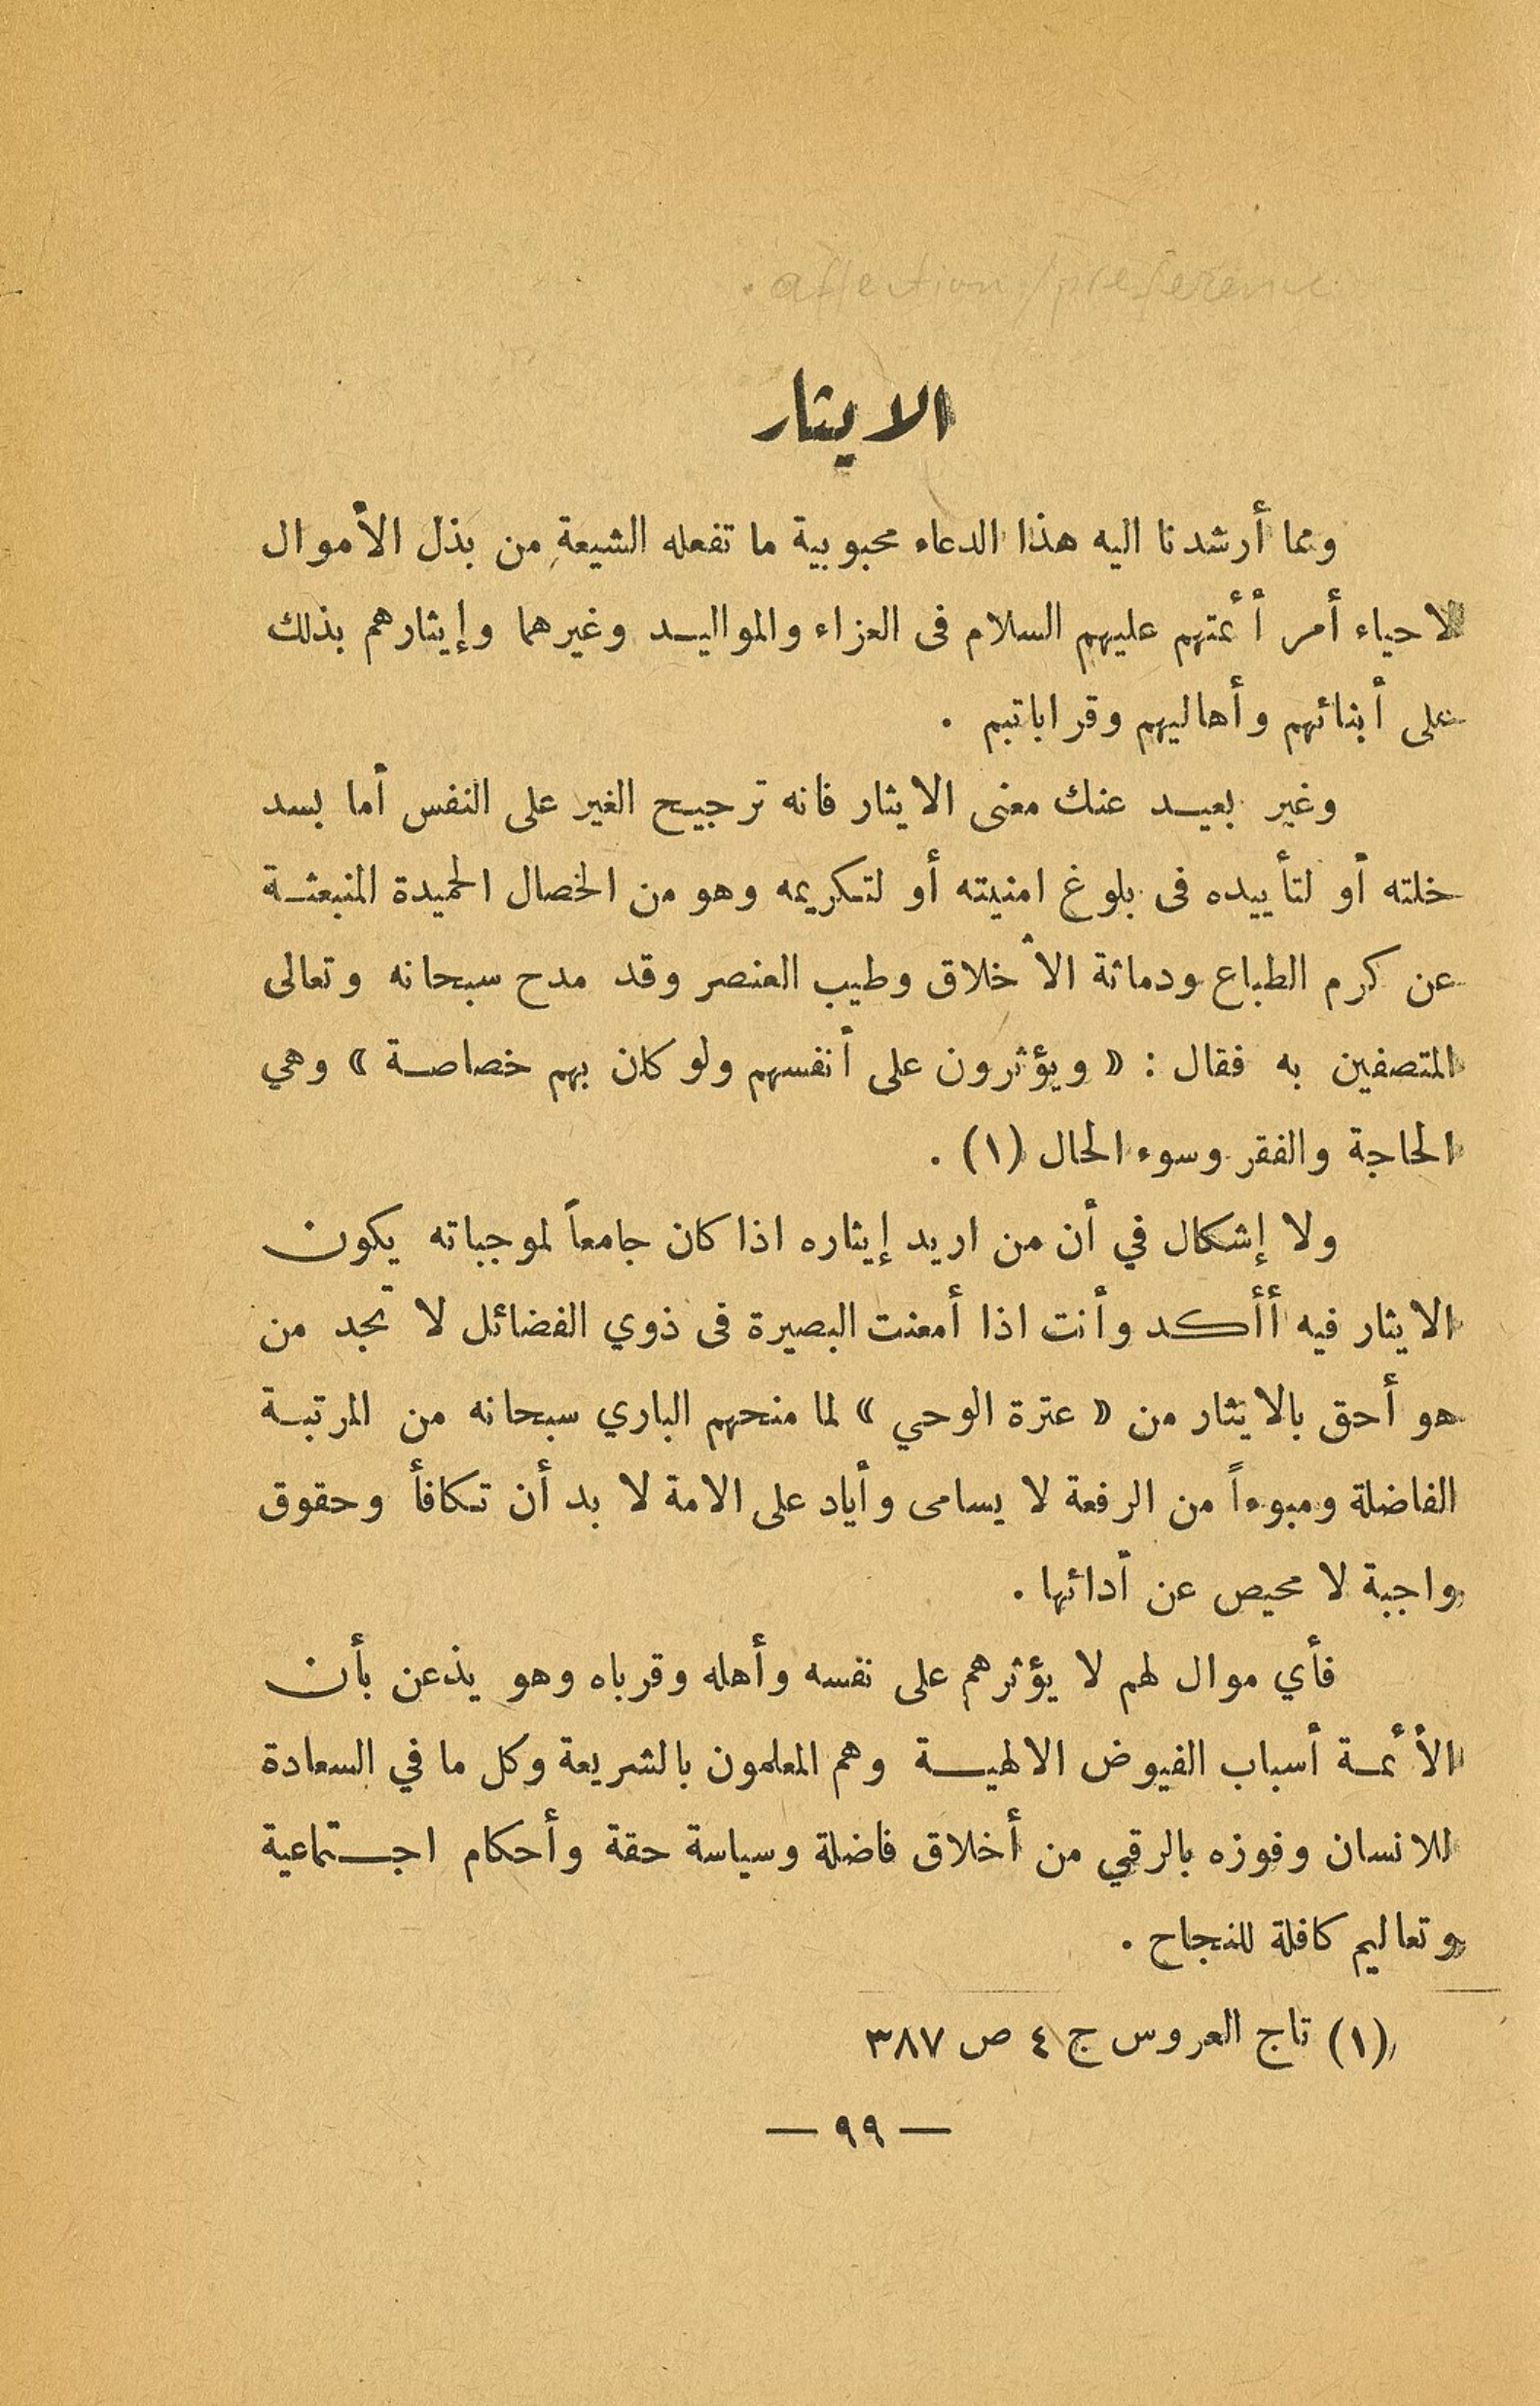 affection/preference.
الايثار
ومما أرشدنا اليه هذا الدعاء محبوبية ما تفعله الشيعة من بذل الأموال
لاحياء أمر أئمتهم عليهم السلام فى العزاء والمواليد وغيرهما وإيثارهم بذلك
على أبنائهم وأهاليهم وقراباتهم .
وغير بعيد عنك معنى الايثار فانه ترجيح الغير على النفس أما بسد
خلته أو لتأييده فى بلوغ امنيته أو لتكريمه وهو من الخصال الحميدة المنبعثة
عن كرم الطباع ودماثة الأخلاق وطيب العنصر وقد مدح سبحانه وتعالى
المتصفين به فقال : « ويؤثرون على أنفسهم ولو كان بهم خصاصة » وهي
الحاجة والفقر وسوء الحال (١) .
ولا إشكال في أن من اريد إيثاره اذا كان جامعاً لموجباته يكون
الايثار فيه أأكد وأنت اذا أمعنت البصيرة فى ذوي الفضائل لا تجد من
هو أحق بالايثار من « عترة الوحي » لما منحهم الباري سبحانه من المرتبة
الفاضلة ومبوءاً من الرفعة لا يسامى وأياد على الامة لا بد أن تكافأ وحقوق
واجبة لا محيص عن أدائها .
فأي موال لهم لا يؤثرهم على نفسه وأهله وقرباه وهو يذعن بأن
الأئمة أسباب الفيوض الالهية وهم المعلمون بالشريعة وكل ما في السعادة
للانسان وفوزه بالرقي من أخلاق فاضلة وسياسة حقة وأحكام اجتماعية
وتعاليم كافلة للنجاح .
(١) تاج العروس ج ٤ ص ٣٨٧
— ٩٩ —